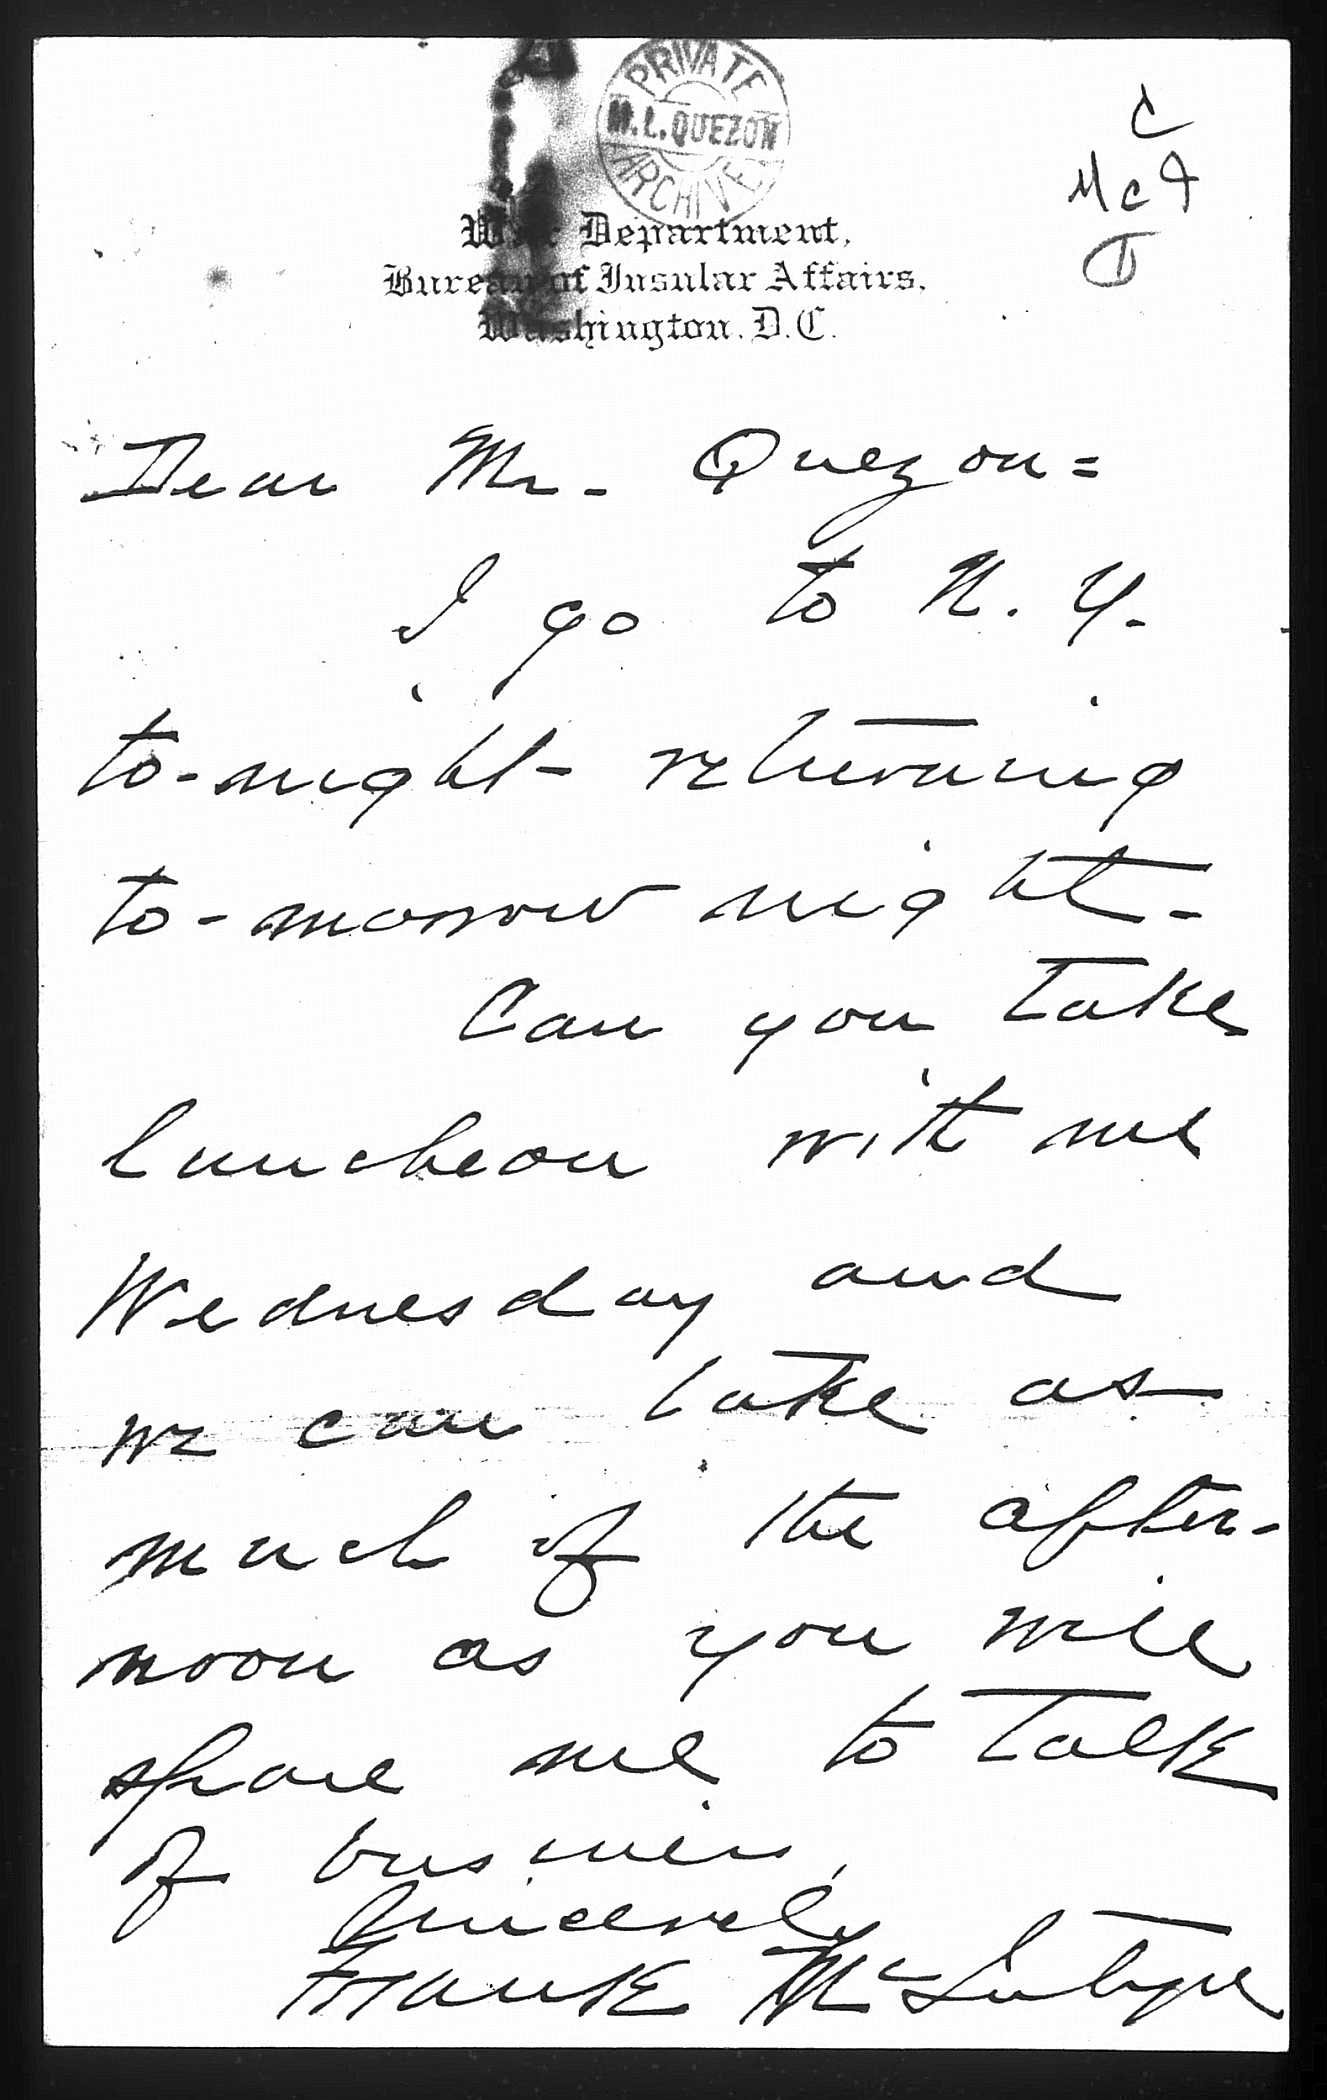 PRIVATE
M.L.QUEZON
ARCHIVE
C
McI
War Department,
Bureau of Insular Affairs,
Washington, D.C.
Dear Mr. Quezon =
I go to N. Y.
to-night - returning
to-morrow night -
Can you take
luncheon with me
Wednesday and
we can take as
much of the after-
noon as you will
spare me to talk
of business,
Sincerely
Frank McIntyre